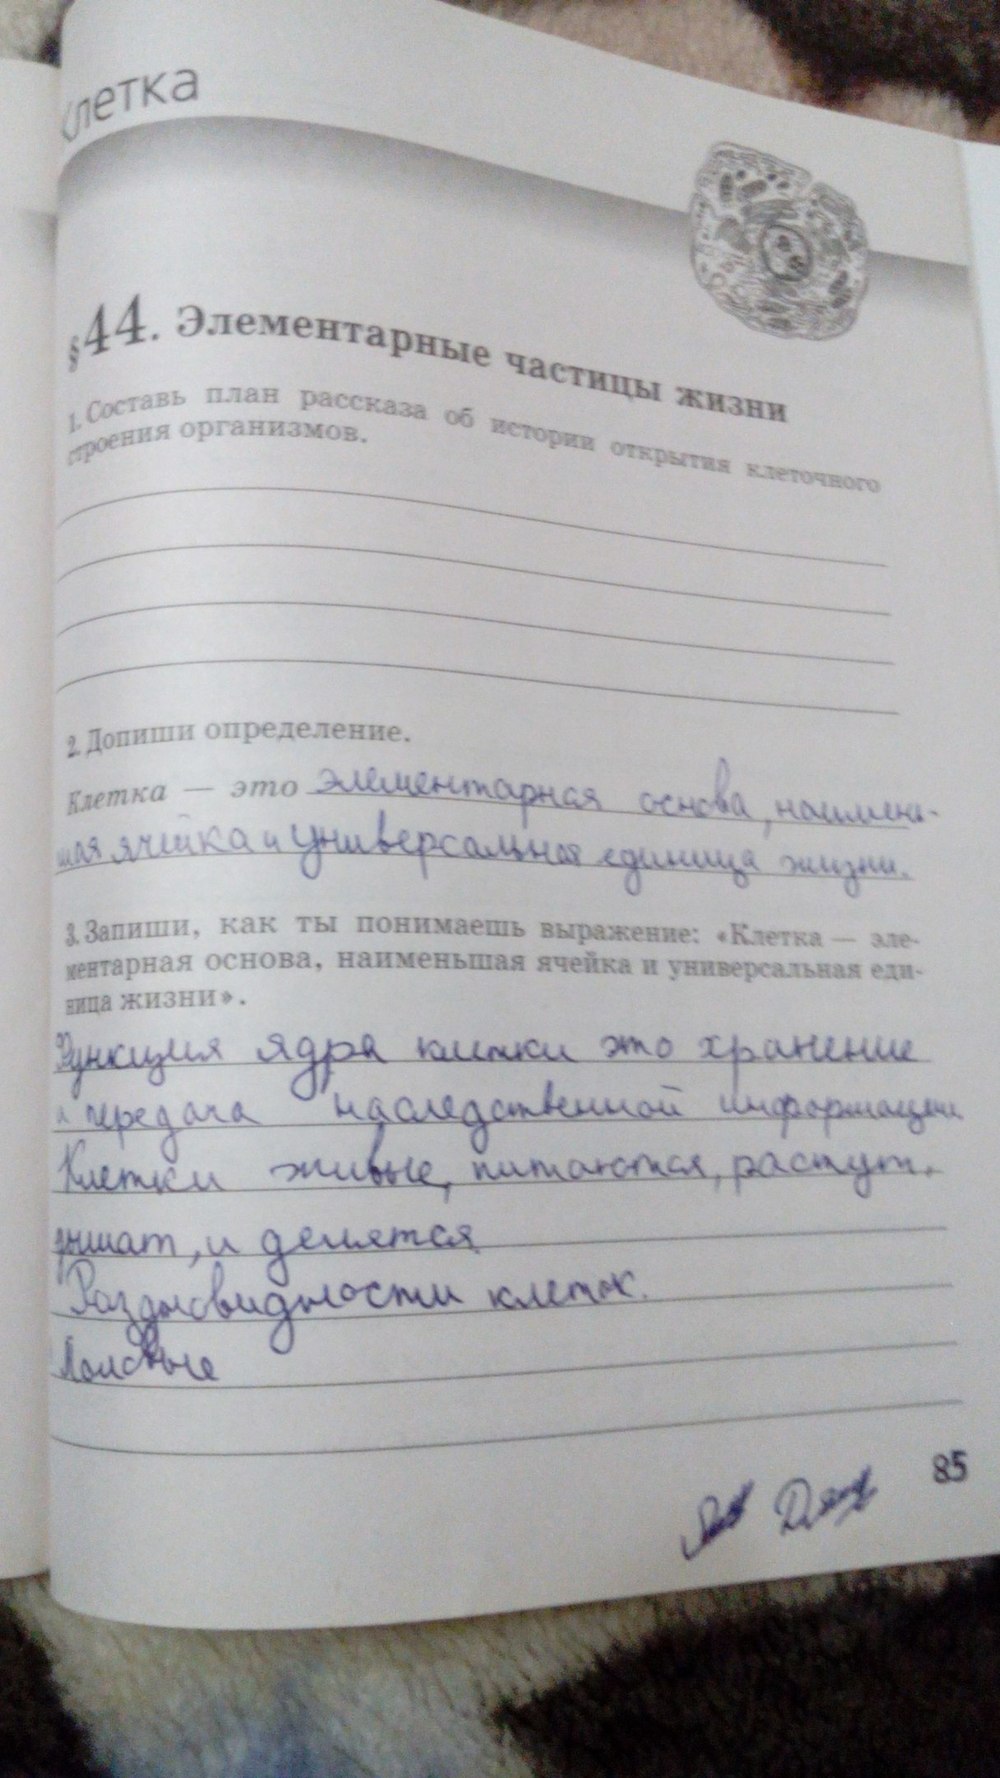 Клетка
§44. Элементарные частицы жизни
1. Составь план рассказа об истории открытия клеточного
строения организмов.
2. Допиши определение.
Клетка — это элементарная основа, наимень-
шая ячейка и универсальная единица жизни.
3. Запиши, как ты понимаешь выражение: «Клетка — эле-
ментарная основа, наименьшая ячейка и универсальная еди-
ница жизни».
Функция ядра клетки это хранение
и передача наследственной информации
Клетки живые, питаются, растут,
дышат, и делятся
Раздновидности клеток.
85